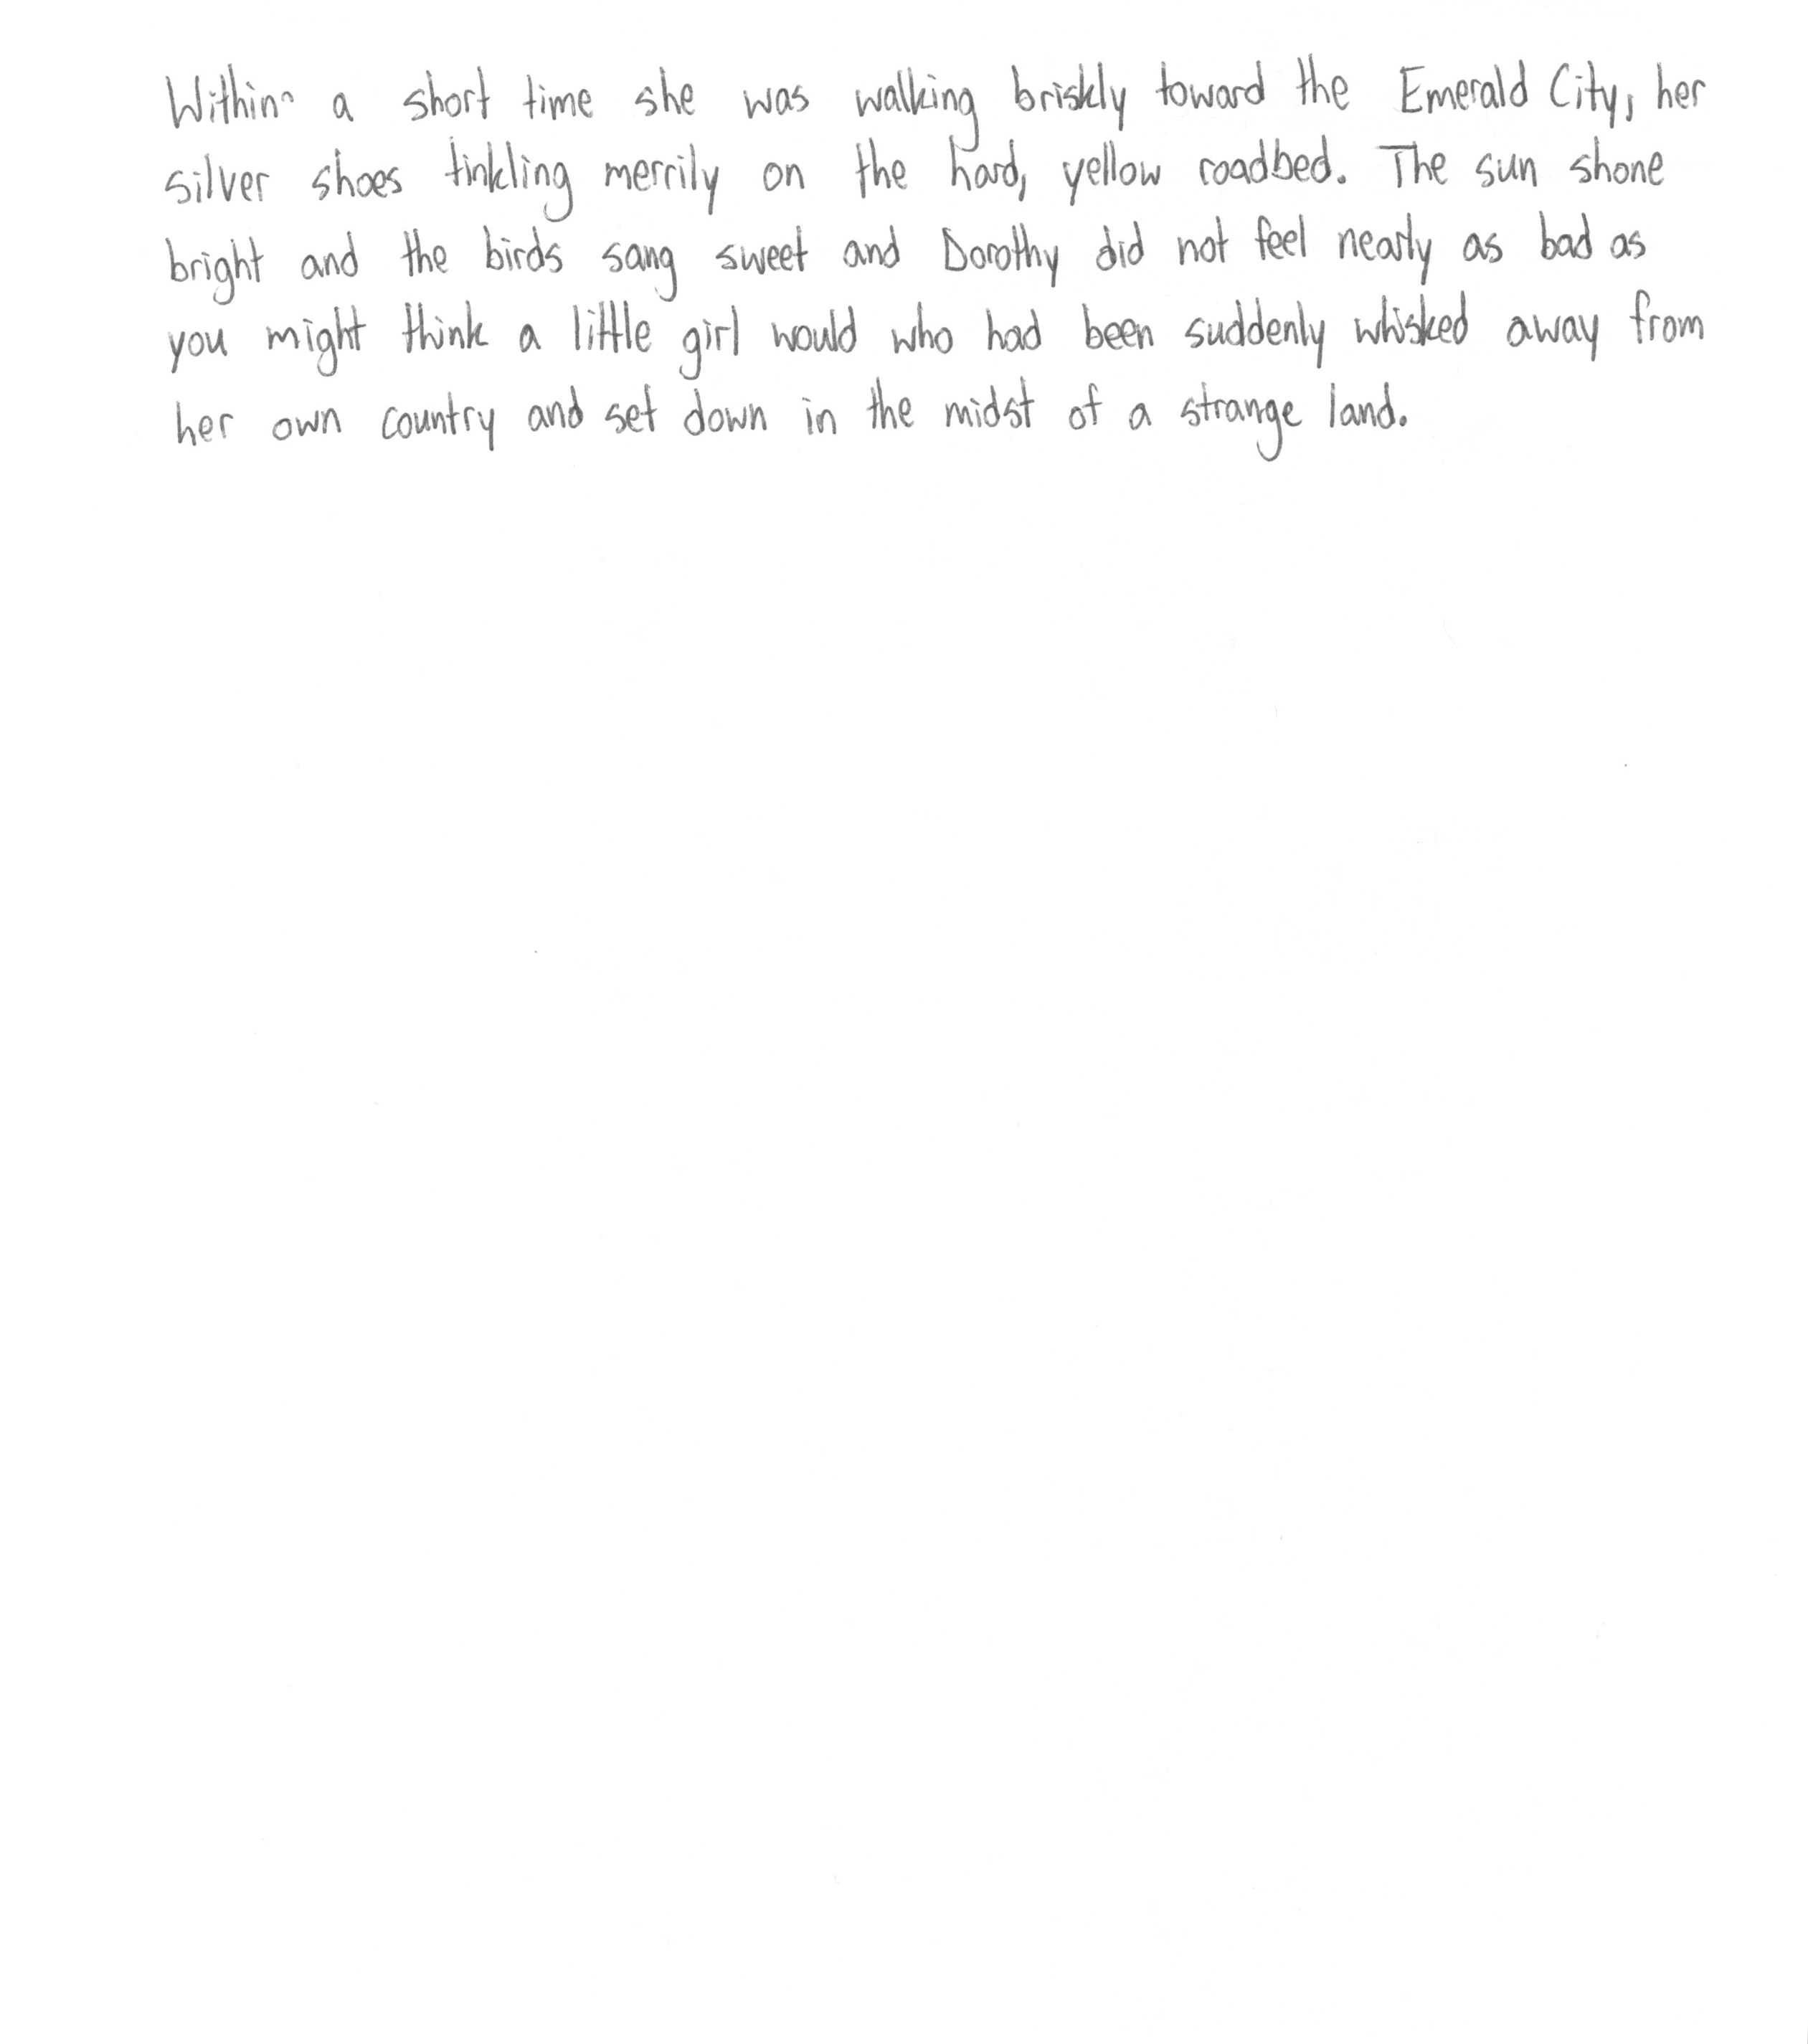 Within a short time she was walking briskly toward the Emerald City, her
silver shoes tinkling merrily on the hard, yellow roadbed. The sun shone
bright and the birds sang sweet and Dorothy did not feel nearly as bad as
you might think a little girl would who had been suddenly whisked away from
her own country and set down in the midst of a strange land.